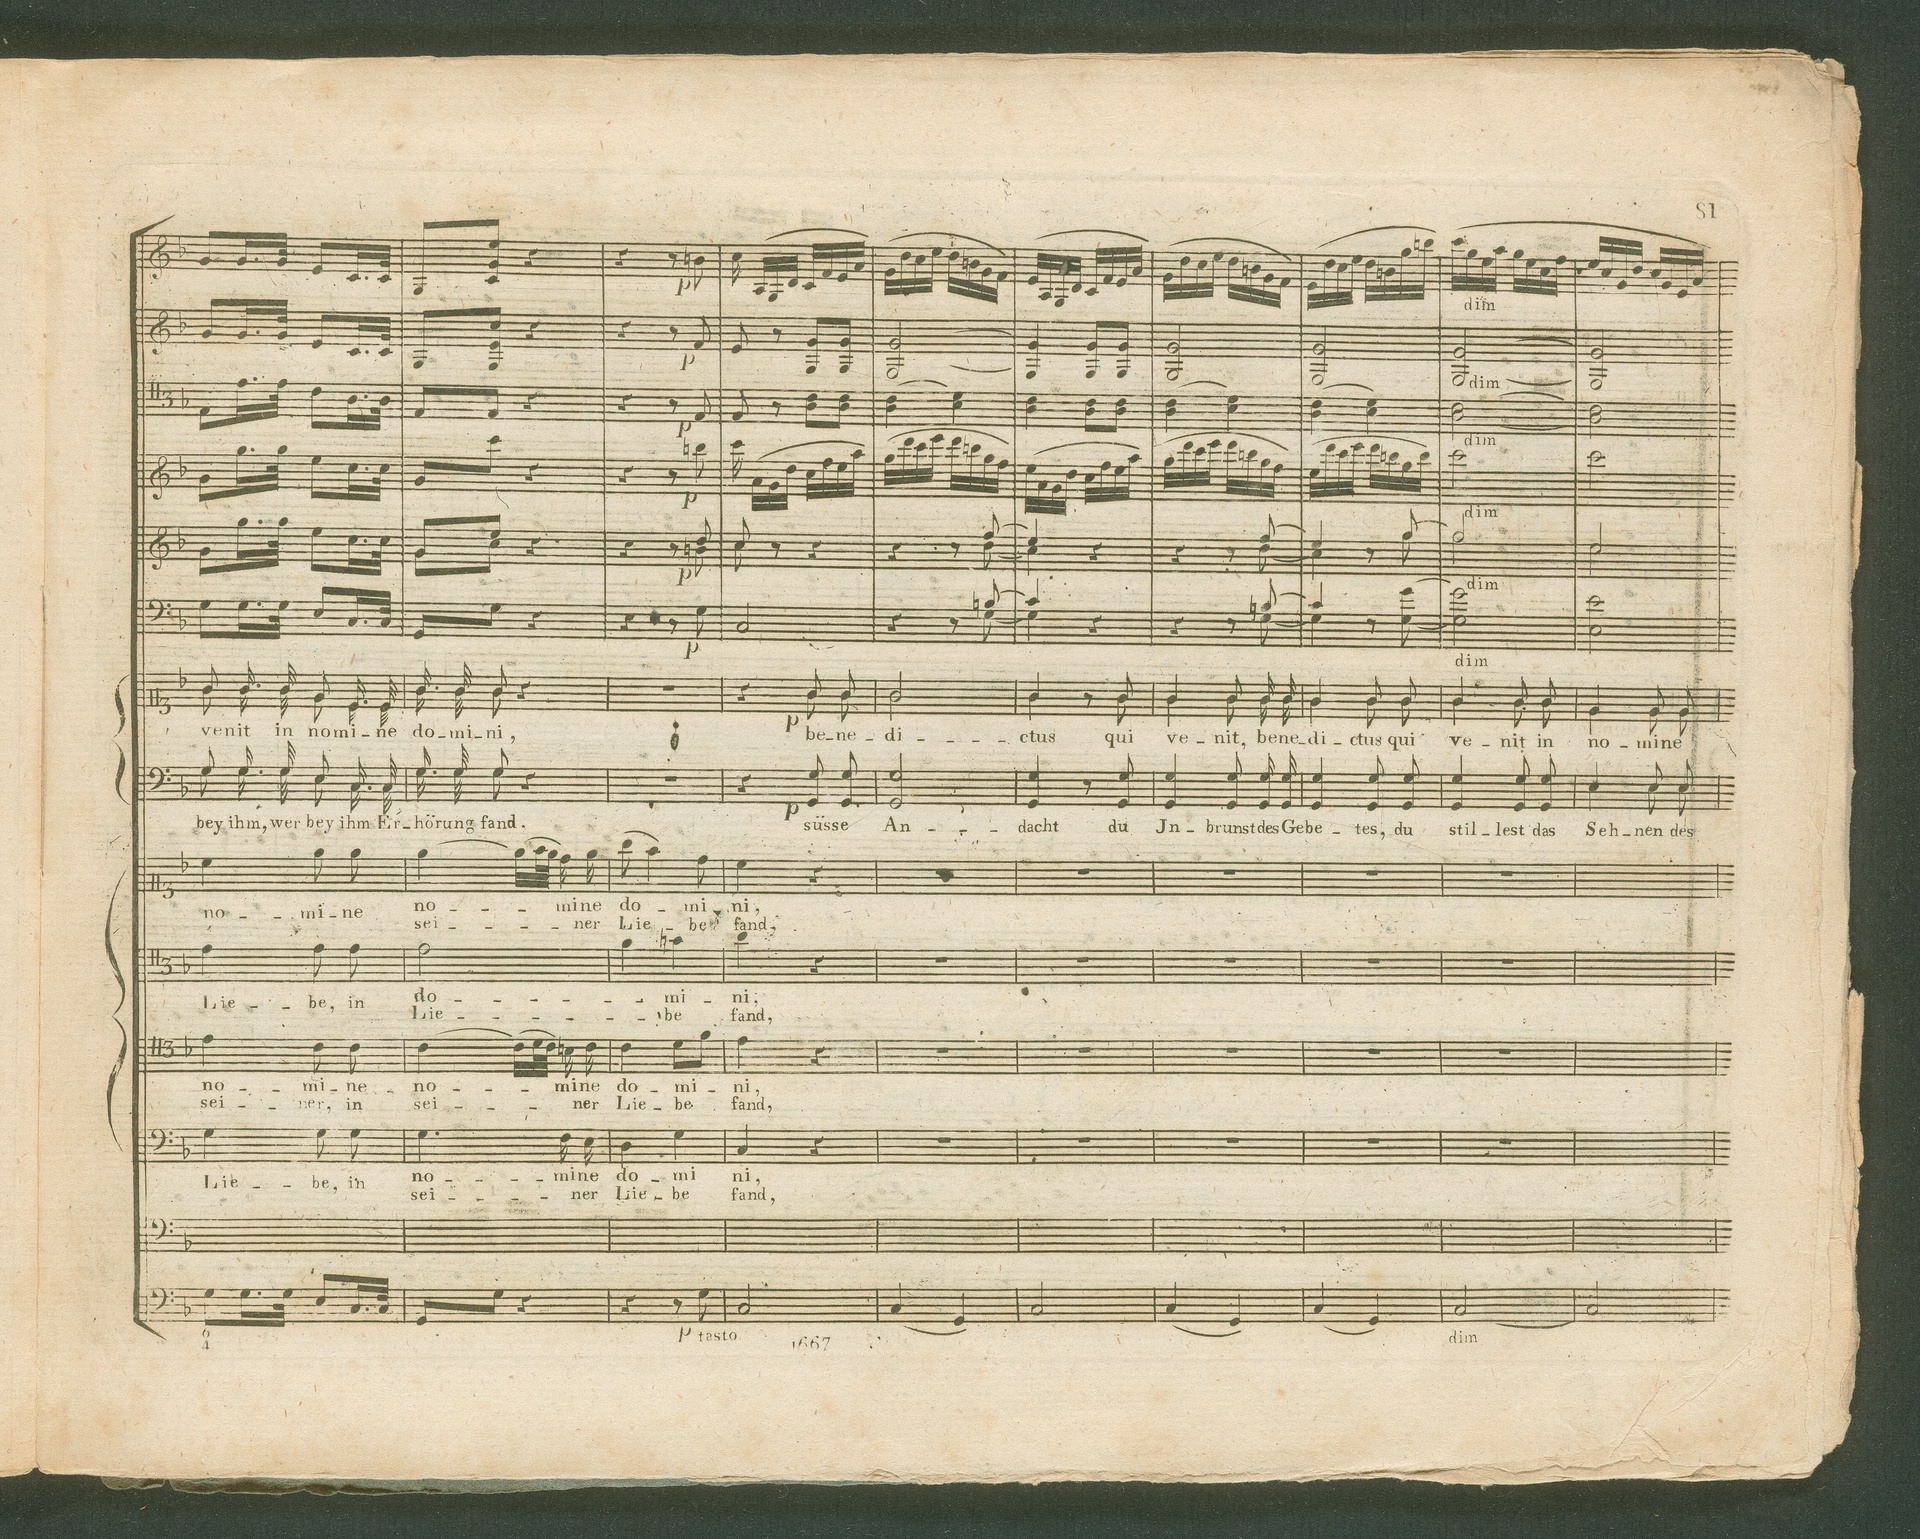 81
p
dim
p
dim
p
dim
p
dim
p
dim
p
dim
venit in nomi-ne do-mi-ni, p be-ne-di - - - - ctus qui ve-nit, bene-di-ctus qui ve-nit in no-mine
bey ihm, wer bey ihm Er-hörung fand. p süsse An - - - dacht du Jn-brunst des Gebe-tes, du stil-lest das Seh-nen des
no - - mi-ne no - - - mine do-mi-ni,
sei - - - - ner Lie-be fand,
Lie - - be, in do - - - - - mi-ni,
Lie - - - - - be fand,
no - - mi-ne no - - - mine do-mi-ni,
sei - - ner, in sei - - - ner Lie-be fand,
Lie - - be, in no - - - mine do-mi ni,
sei - - - ner Lie-be fand,
6
4
p tasto
dim
1667